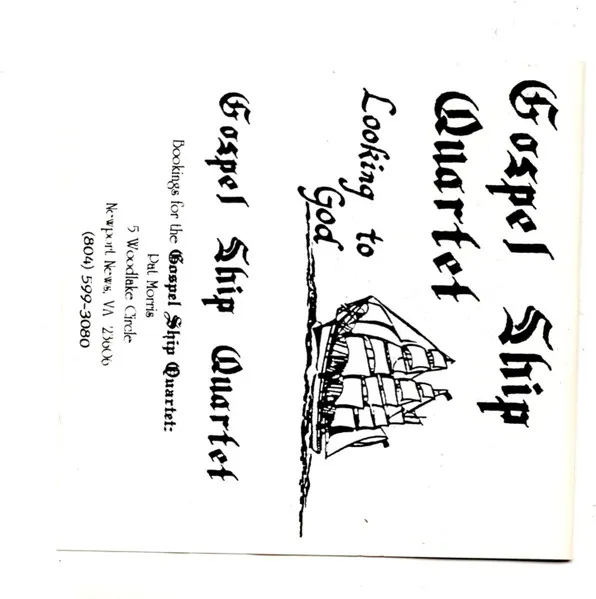 Gospel Ship
Quartet
Looking to
God
Gospel Ship Quartet
Bookings for the Gospel Ship Quartet:
Pat Morris
5 Woodlake Circle
Newport News, VA 23606
(804) 599-3080